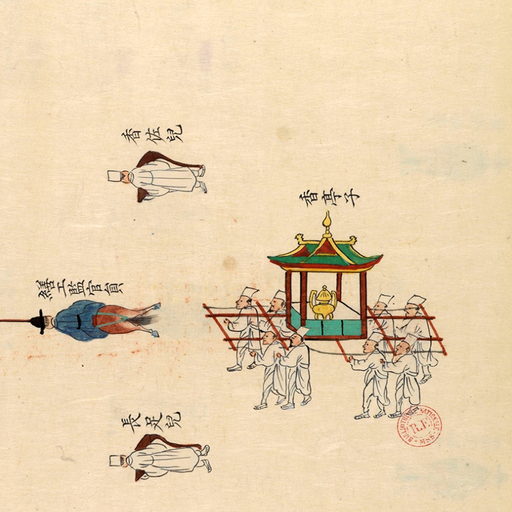 香佐兒
香亭子
繕工監官員
長足兒
R.F.